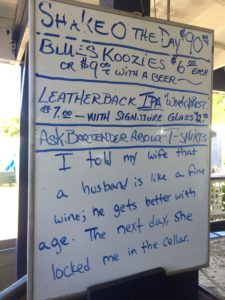 SHAKE O THE DAY $90.00
BILL'S KOOZIES $6.00 EACH
OR $9.00 WITH A BEER
LEATHERBACK IPA
$7.00 — WITH SIGNATURE GLASS
ASK BARTENDER ABOUT T-SHIRTS
I told my wife that
a husband is like a fine
wine; he gets better with
age. The next day, she
locked me in the cellar.